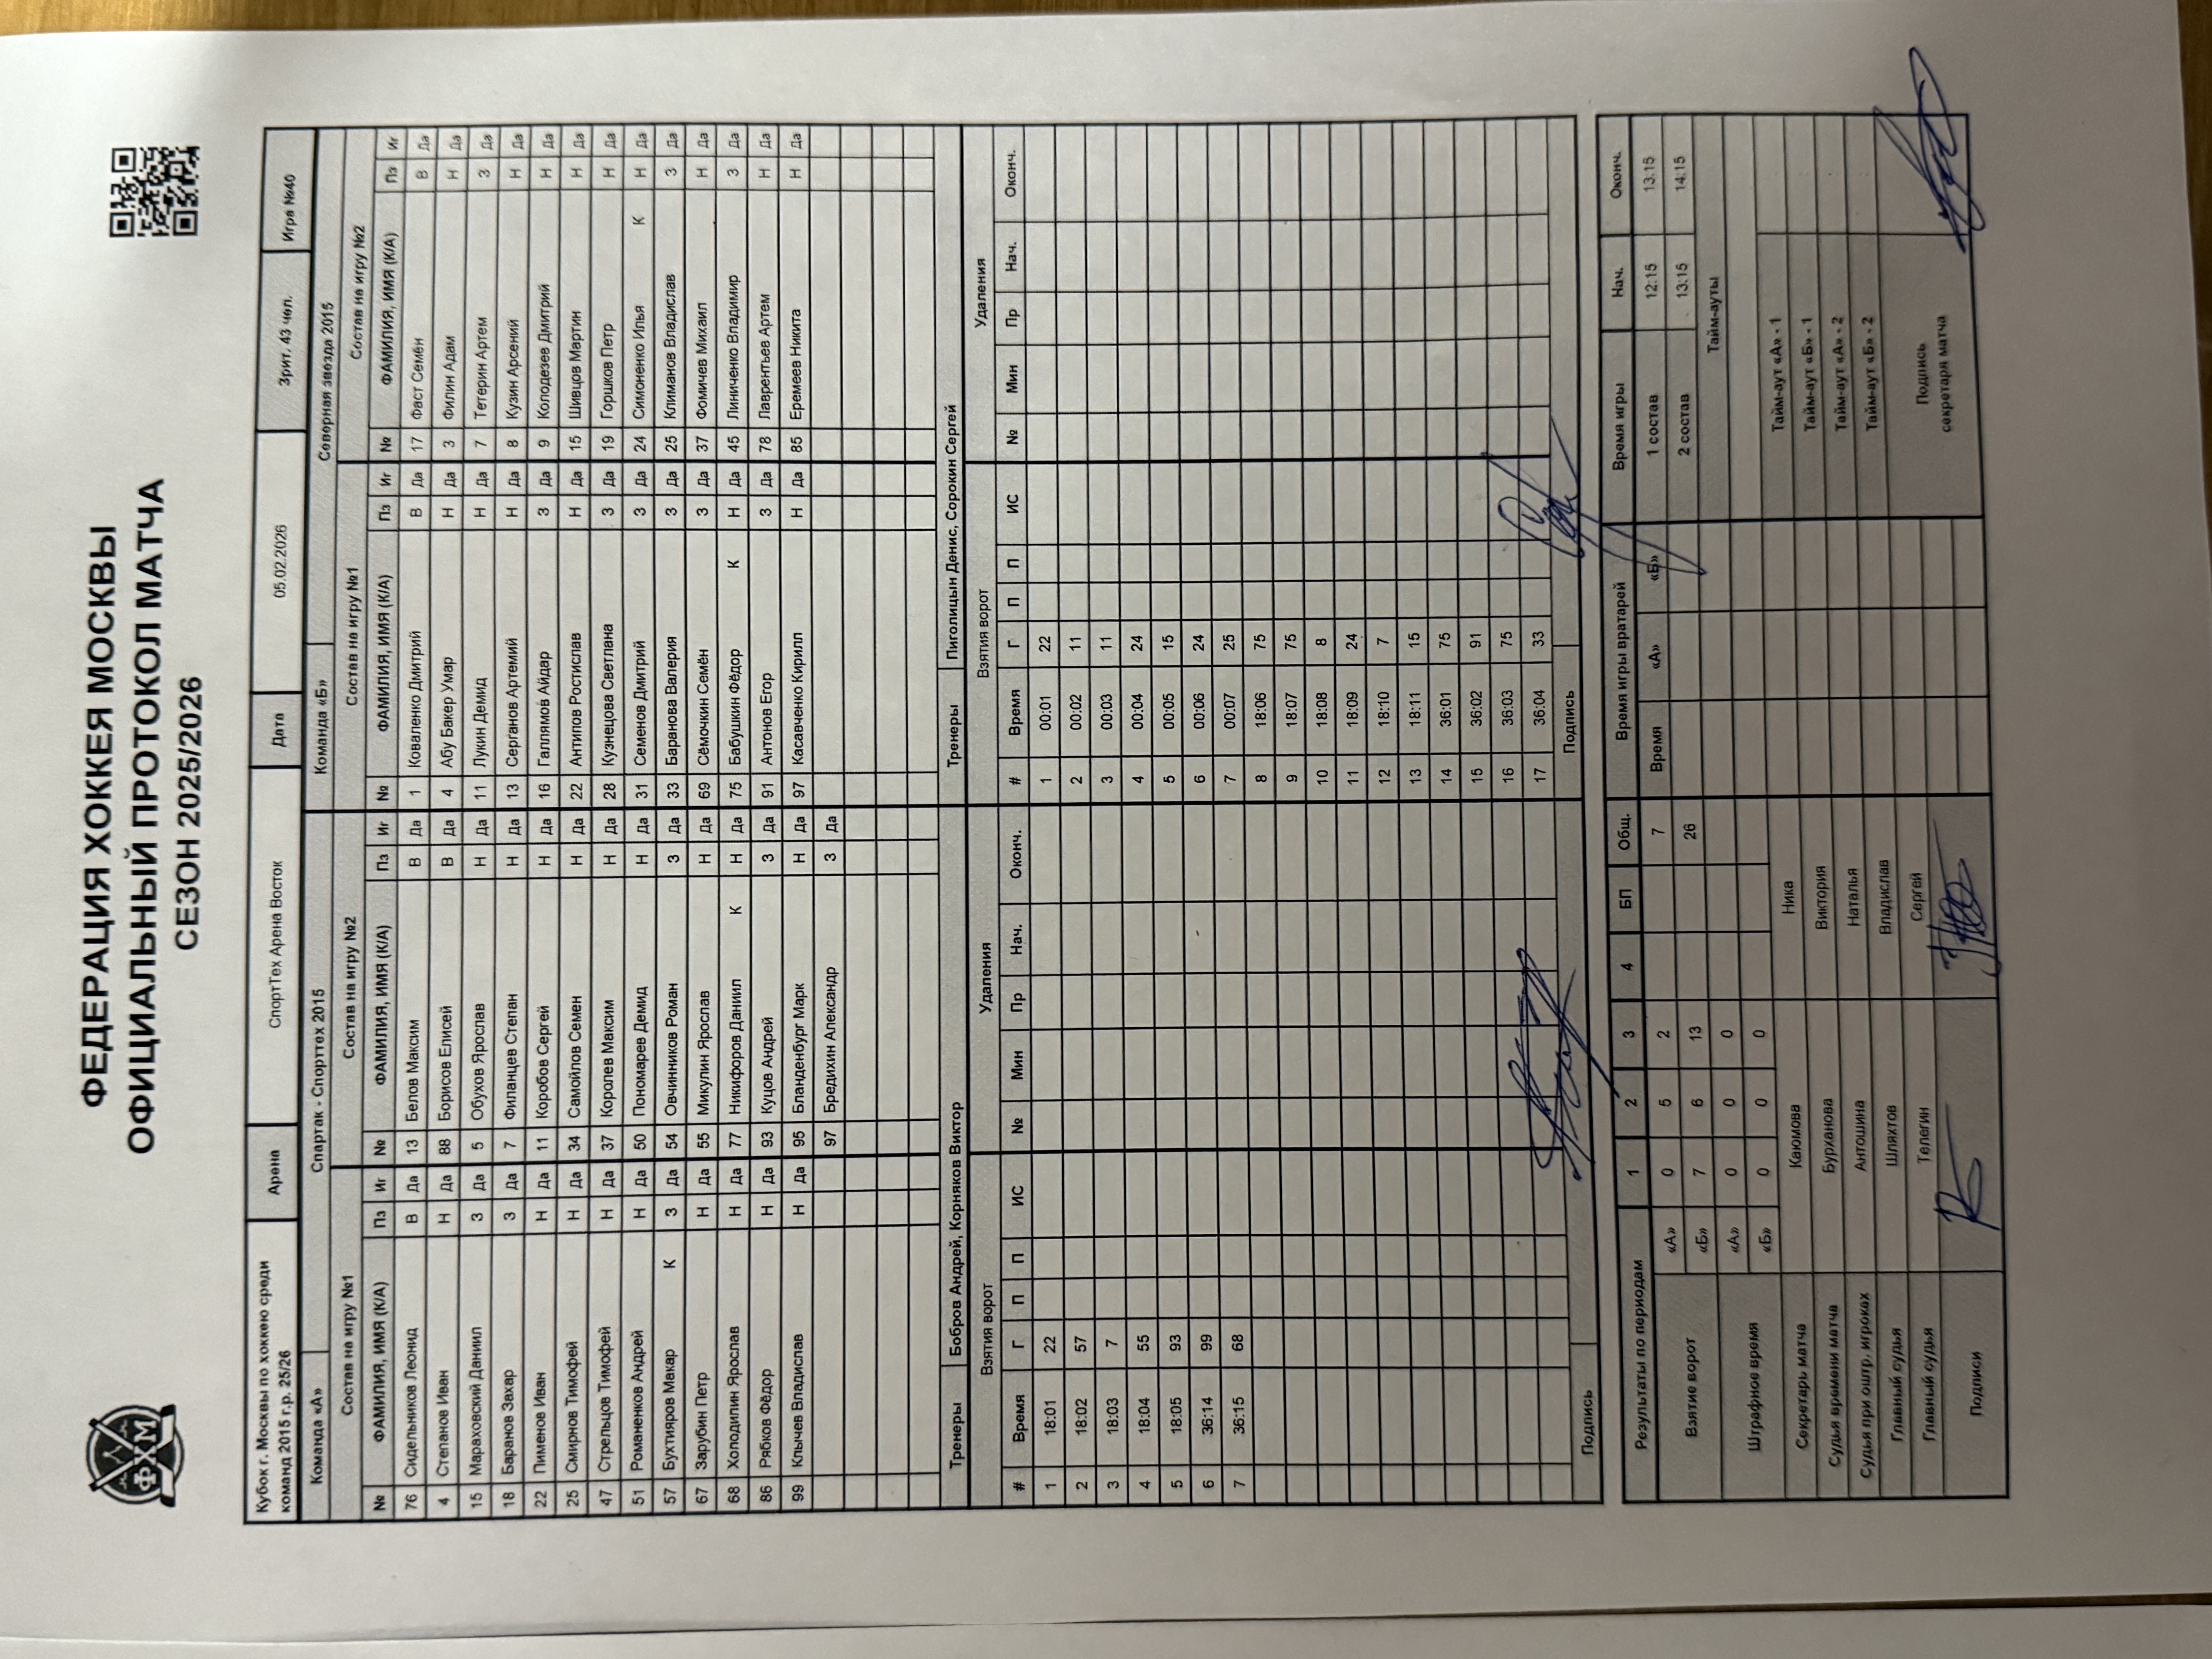 ФЕДЕРАЦИЯ ХОККЕЯ МОСКВЫ
ОФИЦИАЛЬНЫЙ ПРОТОКОЛ МАТЧА
СЕЗОН 2025/2026
ФХМ
Кубок г. Москвы по хоккею среди команд 2015 г.р. 25/26 Арена СпортТех Арена Восток Дата 05.02.2026 Зрит. 43 чел. Игра №40
Команда «А» Спартак - Спорттех 2015 Команда «Б» Северная звезда 2015
Состав на игру №1 Состав на игру №2 Состав на игру №1 Состав на игру №2
№ ФАМИЛИЯ, ИМЯ (К/А) Пз Иг № ФАМИЛИЯ, ИМЯ (К/А) Пз Иг № ФАМИЛИЯ, ИМЯ (К/А) Пз Иг № ФАМИЛИЯ, ИМЯ (К/А) Пз Иг
76 Сидельников Леонид В Да 13 Белов Максим В Да 1 Коваленко Дмитрий В Да 17 Фаст Семён В Да
4 Степанов Иван Н Да 88 Борисов Елисей В Да 4 Абу Бакер Умар Н Да 3 Филин Адам Н Да
15 Мараховский Даниил З Да 5 Обухов Ярослав Н Да 11 Лукин Демид Н Да 7 Тетерин Артем З Да
18 Баранов Захар З Да 7 Филанцев Степан Н Да 13 Серганов Артемий Н Да 8 Кузин Арсений Н Да
22 Пименов Иван Н Да 11 Коробов Сергей Н Да 16 Галлямов Айдар З Да 9 Колодезев Дмитрий Н Да
25 Смирнов Тимофей Н Да 34 Самойлов Семен Н Да 22 Антипов Ростислав Н Да 15 Шивцов Мартин Н Да
47 Стрельцов Тимофей Н Да 37 Королев Максим Н Да 28 Кузнецова Светлана З Да 19 Горшков Петр Н Да
51 Романенков Андрей Н Да 50 Пономарев Демид Н Да 31 Семенов Дмитрий З Да 24 Симоненко Илья К Н Да
57 Бухтияров Макар К З Да 54 Овчинников Роман З Да 33 Баранова Валерия З Да 25 Климанов Владислав З Да
67 Зарубин Петр Н Да 55 Микулин Ярослав Н Да 69 Сёмочкин Семён З Да 37 Фомичев Михаил Н Да
68 Холодилин Ярослав Н Да 77 Никифоров Даниил К Н Да 75 Бабушкин Фёдор К Н Да 45 Линиченко Владимир З Да
86 Рябков Фёдор Н Да 93 Куцов Андрей З Да 91 Антонов Егор З Да 78 Лаврентьев Артем Н Да
99 Клычев Владислав Н Да 95 Бланденбург Марк Н Да 97 Касавченко Кирилл Н Да 85 Еремеев Никита Н Да
97 Бредихин Александр З Да
Тренеры Бобров Андрей, Корняков Виктор Тренеры Пиголицын Денис, Сорокин Сергей
Взятия ворот Удаления Взятия ворот Удаления
# Время Г П П ИС № Мин Пр Нач. Оконч. # Время Г П П ИС № Мин Пр Нач. Оконч.
1 18:01 22 1 00:01 22
2 18:02 57 2 00:02 11
3 18:03 7 3 00:03 11
4 18:04 55 4 00:04 24
5 18:05 93 5 00:05 15
6 36:14 99 6 00:06 24
7 36:15 68 7 00:07 25
8 18:06 75
9 18:07 75
10 18:08 8
11 18:09 24
12 18:10 7
13 18:11 15
14 36:01 75
15 36:02 91
16 36:03 75
17 36:04 33
Подпись Подпись
Результаты по периодам 1 2 3 4 БП Общ. Время игры вратарей Время игры Нач. Оконч.
Взятие ворот «А» 0 5 2 7 Время «А» «Б» 1 состав 12:15 13:15
«Б» 7 6 13 26 2 состав 13:15 14:15
Штрафное время «А» 0 0 0 Тайм-ауты
«Б» 0 0 0
Секретарь матча Каюмова Ника Тайм-аут «А» - 1
Судья времени матча Бурханова Виктория Тайм-аут «Б» - 1
Судья при оштр. игроках Антошина Наталья Тайм-аут «А» - 2
Главный судья Шляхтов Владислав Тайм-аут «Б» - 2
Главный судья Телегин Сергей
Подписи
Подпись секретаря матча